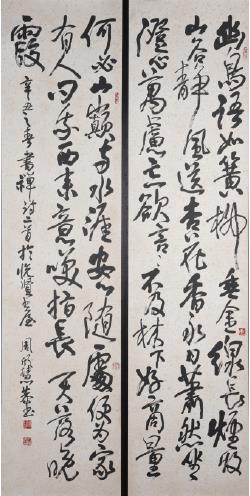 幽鳥語如簧柳垂金線長煙收
山谷靜風送杏花香永日蕭然坐
澄心萬慮忘欲言言不及林下好商量
何必山巔與水涯安心隨處便為家
有人問我西來意笑指長天落晚
霞
辛丑之春書禪詩二首於